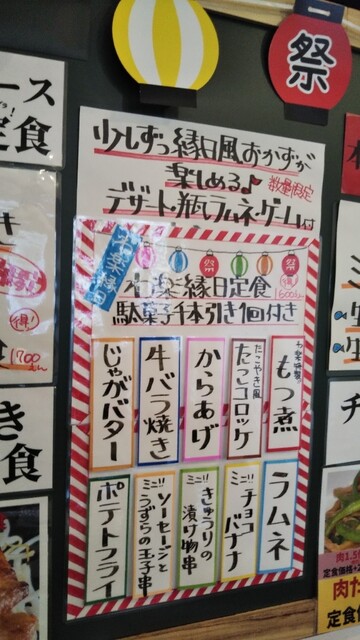 祭
少しずつ縁日風おかずが
楽しめる♪
数量限定
デザート・瓶ラムネ・ゲーム付
祭
祭
わ楽 縁日定食
駄菓子千本引き1回付き
わ楽特製
もつ煮
たこやき風
たっしコロッケ
からあげ
牛バラ焼き
じゃがバター
ラムネ
ミニ!!
チョコ
バナナ
ミニ!!
きゅうりの
漬け物串
ミニ!!
ソーセージと
うずらの玉子串
ポテトフライ
ース
定食
き
得!
1700
き
食
チ
肉1.5
定食価格
定食価格